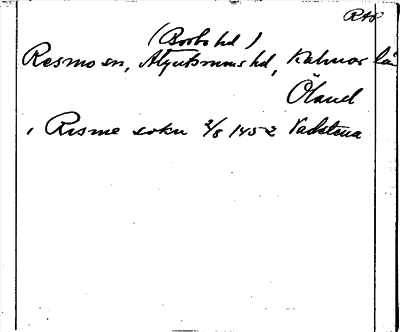 R48
(Borbo hd)
Resmo sn, Algutsrums hd, Kalmar län
Öland
i Risme sokn 2/8 1452 Vadstena